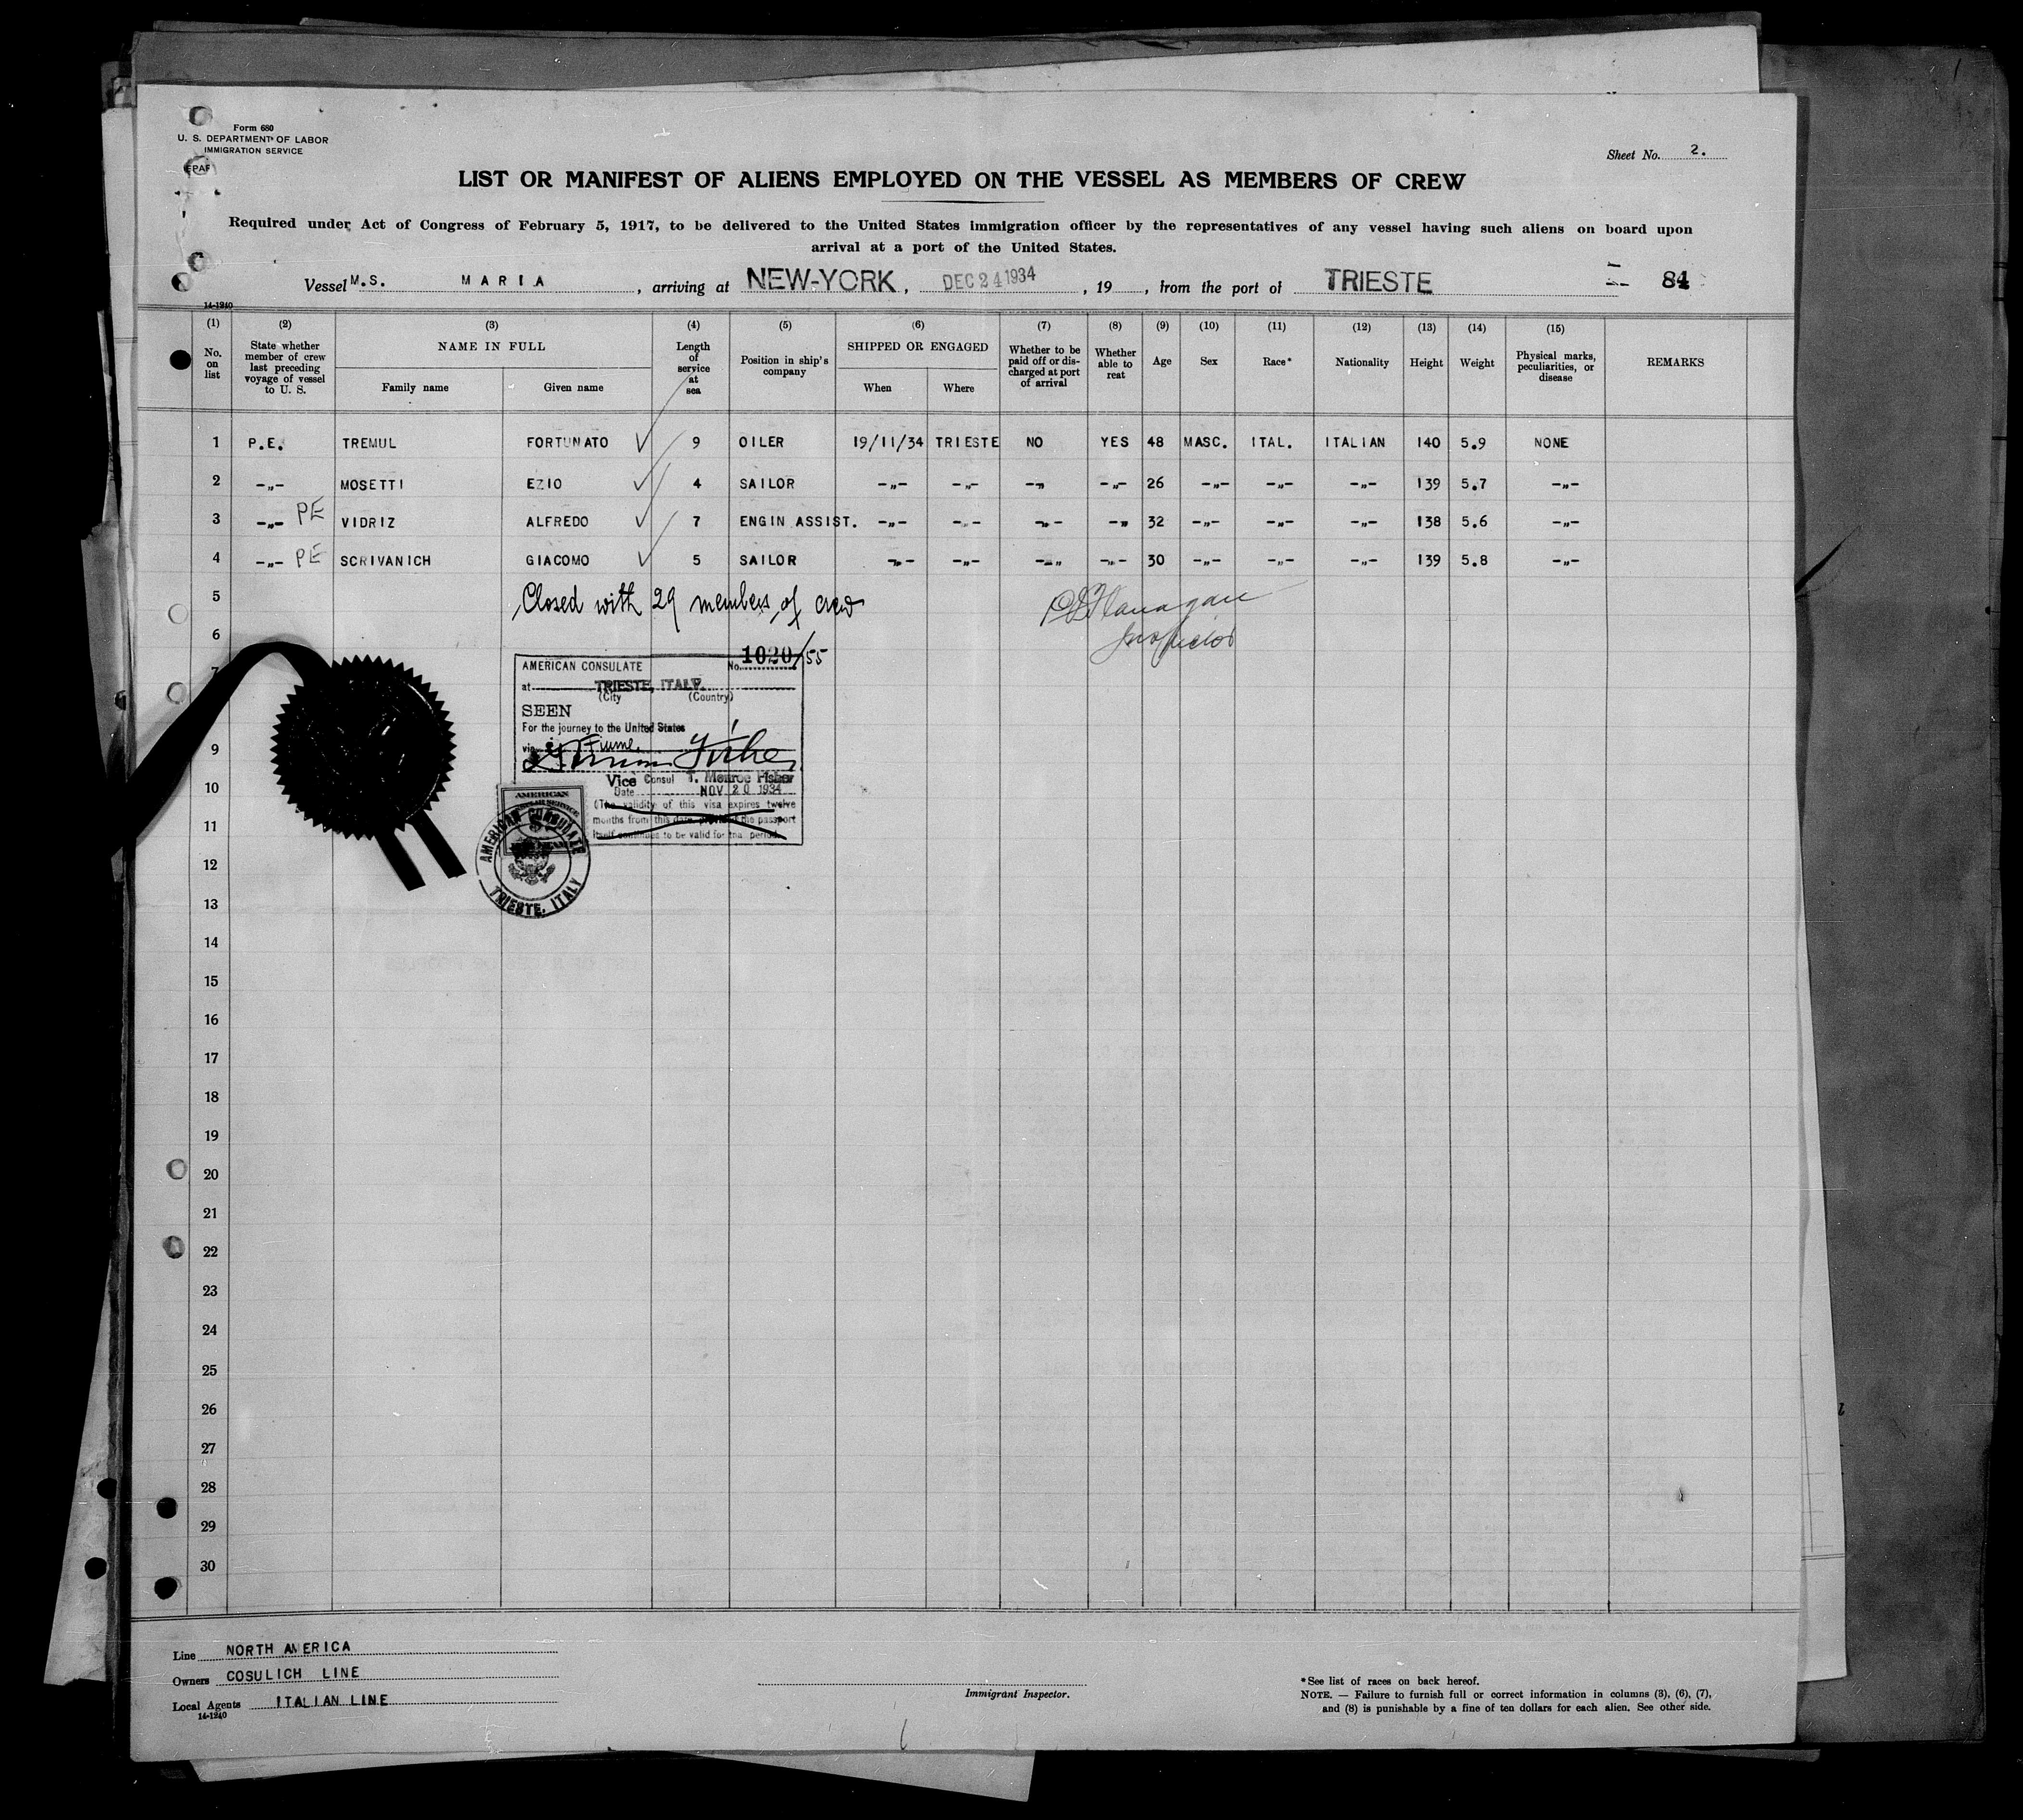 Form 680
U. S. DEPARTMENT OF LABOR
IMMIGRATION SERVICE
Sheet No. 2.
LIST OR MANIFEST OF ALIENS EMPLOYED ON THE VESSEL AS MEMBERS OF CREW
Required under Act of Congress of February 5, 1917, to be delivered to the United States immigration officer by the representatives of any vessel having such aliens on board upon
arrival at a port of the United States.
Vessel M.S. MARIA, arriving at NEW-YORK, DEC 24 1934, 19 , from the port of TRIESTE 84
14-1240
(1) (2) (3) (4) (5) (6) (7) (8) (9) (10) (11) (12) (13) (14) (15)
No. on list
State whether member of crew last preceding voyage of vessel to U. S.
NAME IN FULL
Family name
Given name
Length of service at sea
Position in ship's company
SHIPPED OR ENGAGED
When
Where
Whether to be paid off or discharged at port of arrival
Whether able to reat
Age
Sex
Race*
Nationality
Height
Weight
Physical marks, peculiarities, or disease
REMARKS
1 P.E. TREMUL FORTUNATO 9 OILER 19/11/34 TRIESTE NO YES 48 MASC. ITAL. ITALIAN 140 5.9 NONE
2 -„- MOSETTI EZIO 4 SAILOR -„- -„- -„ -„- 26 -„- -„- -„- 139 5.7 -„-
3 -„- PE VIDRIZ ALFREDO 7 ENGIN ASSIST. -„- -„- -„- -„ 32 -„- -„- -„- 138 5.6 -„-
4 -„- PE SCRIVANICH GIACOMO 5 SAILOR -„- -„- -„- -„- 30 -„- -„- -„- 139 5.8 -„-
5 Closed with 29 members of crew
Flanagan
6 Inspector
7
AMERICAN CONSULATE No. 1020/55
at TRIESTE, ITALY.
(City (Country)
SEEN
For the journey to the United States
via Fiume
Fisher
Vice Consul T. Monroe Fisher
Date NOV 20 1934
(The validity of this visa expires twelve
months from this date provided the passport
itself continues to be valid for tha period.
AMERICAN
AMERICAN CONSULATE
TRIESTE, ITALY
9
10
11
12
13
14
15
16
17
18
19
20
21
22
23
24
25
26
27
28
29
30
Line NORTH AMERICA
Owners COSULICH LINE
Local Agents ITALIAN LINE
14-1240
Immigrant Inspector.
*See list of races on back hereof.
NOTE. — Failure to furnish full or correct information in columns (3), (6), (7),
and (8) is punishable by a fine of ten dollars for each alien. See other side.